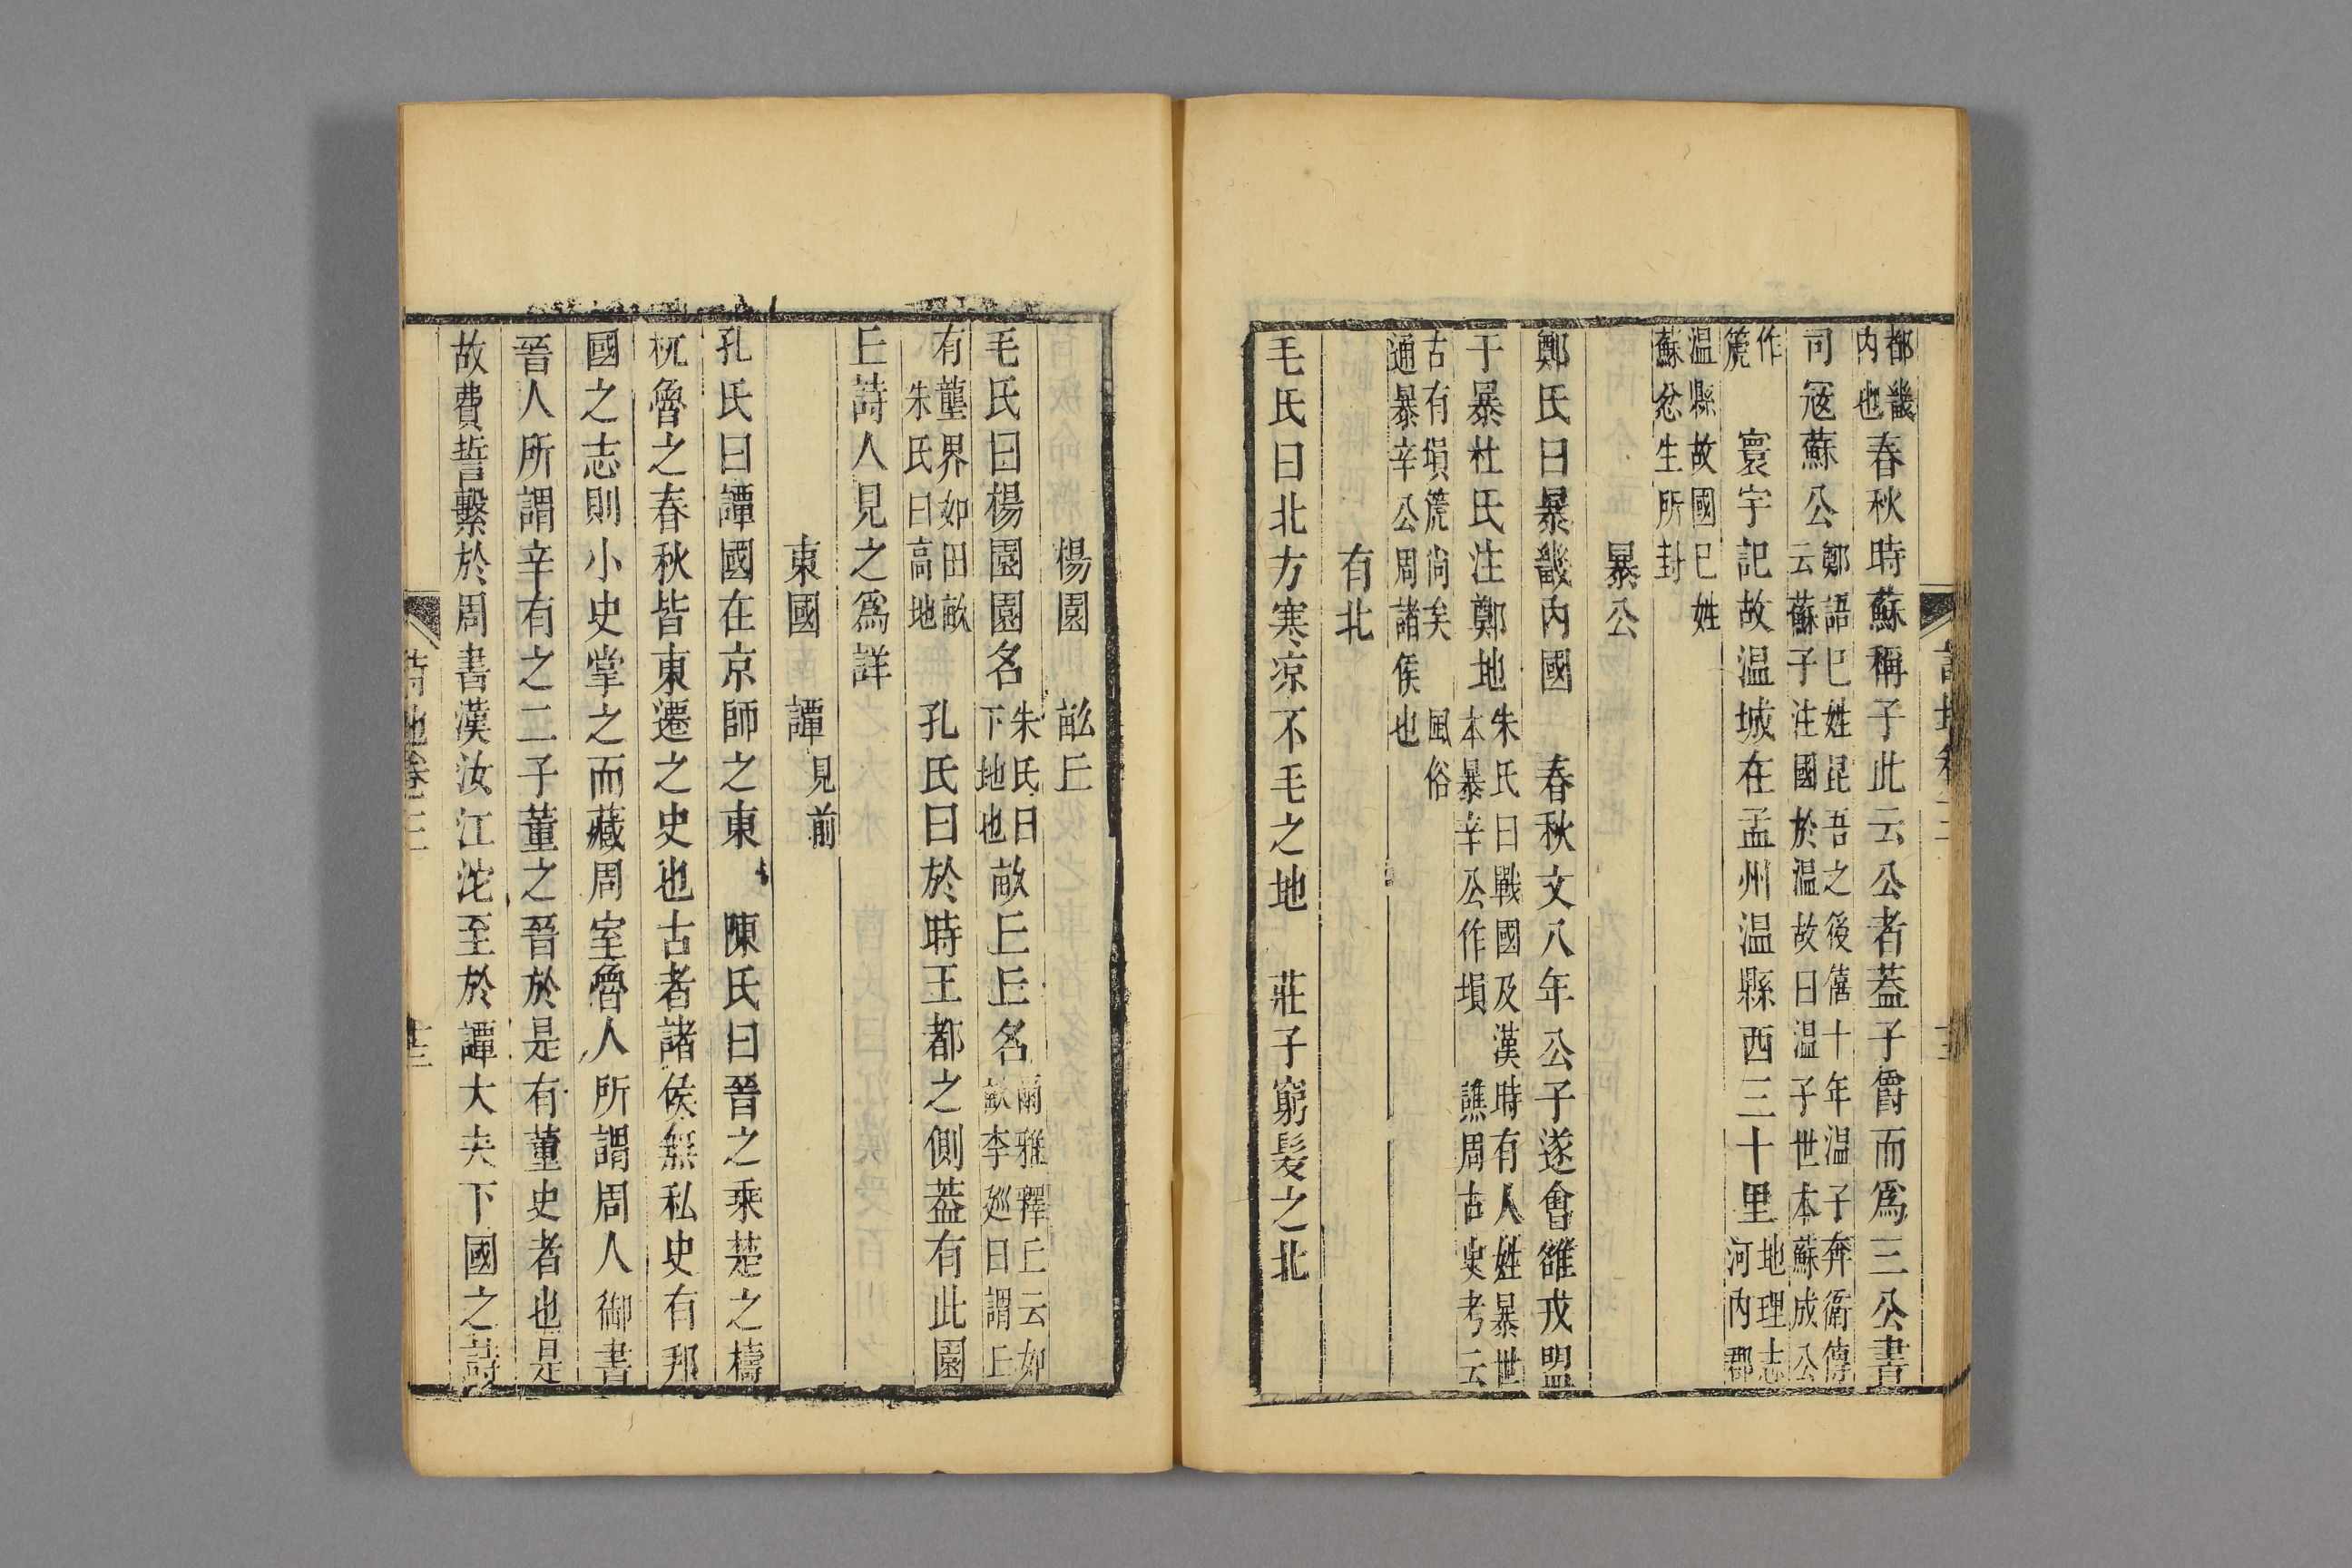 都畿内也春秋時蘇稱子此云公者葢子爵而爲三公書
司寇蘇公鄭語巳姓昆吾之後僖十年温子奔衞傳云蘇子注國於温故曰温子世本蘇成公
作篪　寰宇記故温城在孟州温縣西三十里地理志河内郡
温縣故國巳姓蘇忿生所封
暴公
鄭氏曰暴畿内國　春秋文八年公子遂會雒戎盟
于暴杜氏注鄭地朱氏曰戰國及漢時有人姓暴世本暴辛公作塤　譙周古史考云
古有塤篪尚矣　風俗通暴辛公周諸侯也
有北
毛氏曰北方寒凉不毛之地　莊子窮髮之北
楊園　畝丘
毛氏曰楊園園名朱氏曰下地也畝丘丘名爾雅釋丘云如畝李廵曰謂丘
有壟界如田畝　朱氏曰高地　孔氏曰於時王都之側葢有此園
丘詩人見之爲詳
東國　譚見前
孔氏曰譚國在京師之東　陳氏曰晉之乘楚之檮
杌魯之春秋皆東遷之史也古者諸侯無私史有邦
國之志則小史掌之而藏周室魯人所謂周人御書
晉人所謂辛有之二子董之晉於是有董史者也是
故費誓繫於周書漢汝江沱至於譚大夫下國之詩
詩地卷三
十三